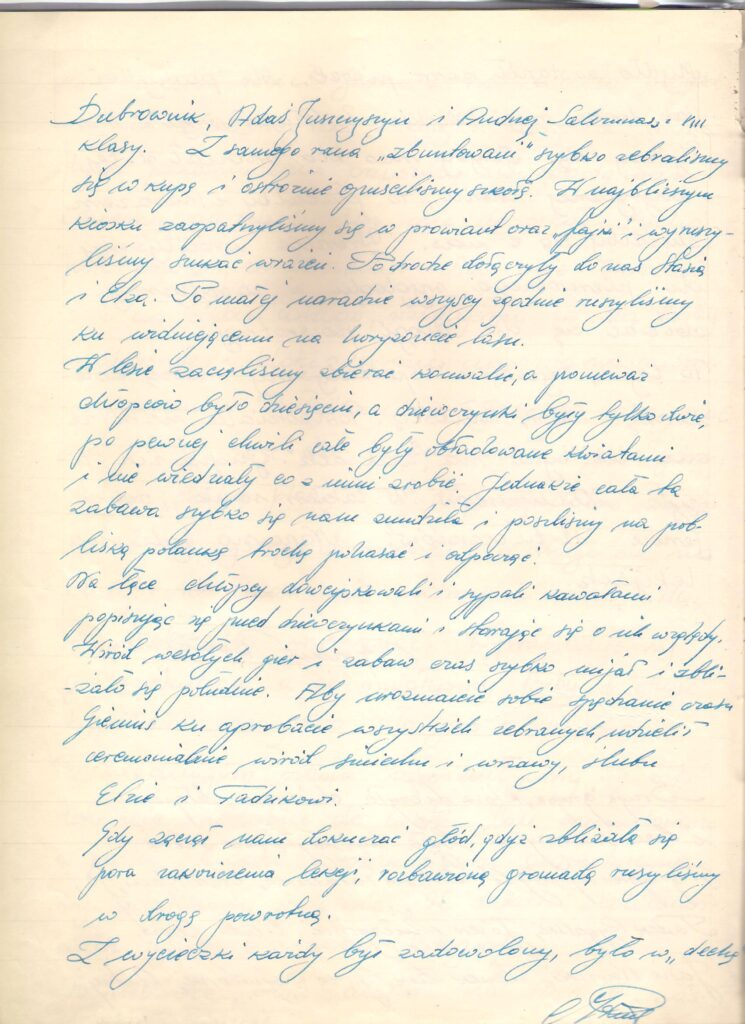 Dubrownik, Adaś Juszczyszyn i Andrzej z VIII
klasy. Z samego rana „zbuntowani” szybko zebraliśmy
się w kupę i ostrożnie opuściliśmy szkołę. W najbliższym
kiosku zaopatrzyliśmy się w prowiant oraz „fajki” i wyruszy-
liśmy szukać wrażeń. Po drodze dołączyły do nas Stasia
i Elza. Po małej naradzie wszyscy zgodnie ruszyliśmy
ku widniejącemu na horyzoncie lasu.
W lesie zaczęliśmy zbierać konwalie, a ponieważ
chłopców było dziesięciu, a dziewczynki były tylko dwie,
po pewnej chwili całe były obładowane kwiatami
i nie wiedziały co z nimi zrobić. Jednakże cała ta
zabawa szybko się nam znudziła i poszliśmy na pob-
liską polankę trochę pohasać i odpocząć.
Na łące chłopcy dowcipkowali i sypali kawałami
popisując się przed dziewczynkami i starając się o ich względy.
Wśród wesołych gier i zabaw czas szybko mijał i zbli-
-żało się południe. Aby urozmaicić sobie spędzanie czasu
Gienuś ku aprobacie wszystkich zebranych udzielił
ceremonialnie wśród śmiechu i wrzawy, ślubu
Elzie i Tadzikowi.
Gdy zaczął nam dokuczać głód, gdyż zbliżała się
pora zakończenia lekcji, rozbawioną gromadą ruszyliśmy
w drogę powrotną.
Z wycieczki każdy był zadowolony, było w „dechę